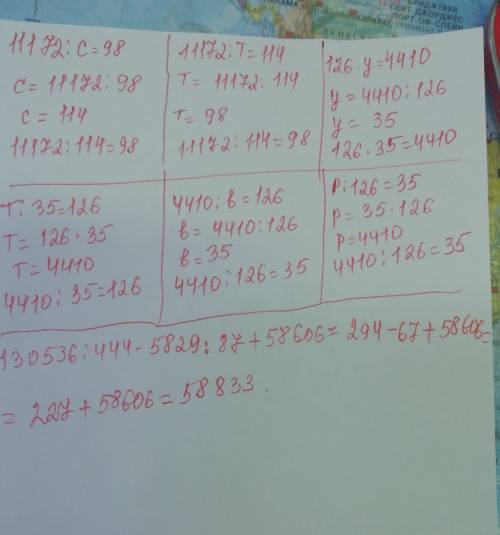 ПАНАМА
БРИДЖТАУН
СЕНТ-ДЖОРДЖЕС
ПОРТ-ОФ-СПЕЙН
КАРАКАС
11172 : c = 98
c = 11172 : 98
c = 114
11172 : 114 = 98
11172 : т = 114
т = 11172 : 114
т = 98
11172 : 114 = 98
126 · y = 4410
y = 4410 : 126
y = 35
126 · 35 = 4410
т : 35 = 126
т = 126 · 35
т = 4410
4410 : 35 = 126
4410 : в = 126
в = 4410 : 126
в = 35
4410 : 126 = 35
р : 126 = 35
р = 35 · 126
р = 4410
4410 : 126 = 35
130536 : 444 - 5829 : 87 + 58606 = 294 - 67 + 58606 =
= 227 + 58606 = 58833.